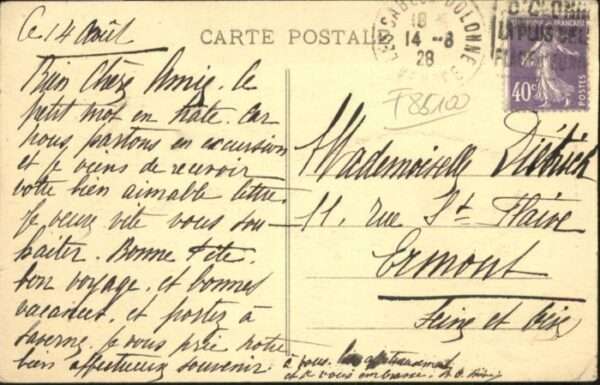 Ce 14 Août
Bien Chère Amie. Ce
petit mot en hâte. Car
nous partons en excursion
et je viens de recevoir
votre bien aimable lettre.
Je veux vite vous sou-
haiter. Bonne Fête.
bon voyage. et bonnes
vacances. et portez à
Saverne. Je vous prie notre
bien affectueux souvenir
à vous.
et à vous embrasse.
CARTE POSTALE
LES SABLES D'OLONNE
18
14 - 8
28
LA PLUS BELLE
40c
POSTES
F85100
Mademoiselle Dietrich
11, rue St Flaive
Ermont
Seine et Oise